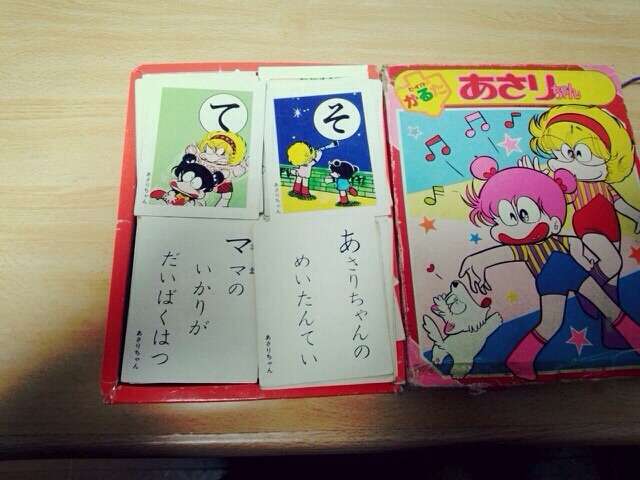 て
あさりちゃん
そ
あさりちゃん
かるた
あさりちゃん
あさりちゃんの
めいたんてい
あさりちゃん
ママの
いかりが
だいばくはつ
あさりちゃん